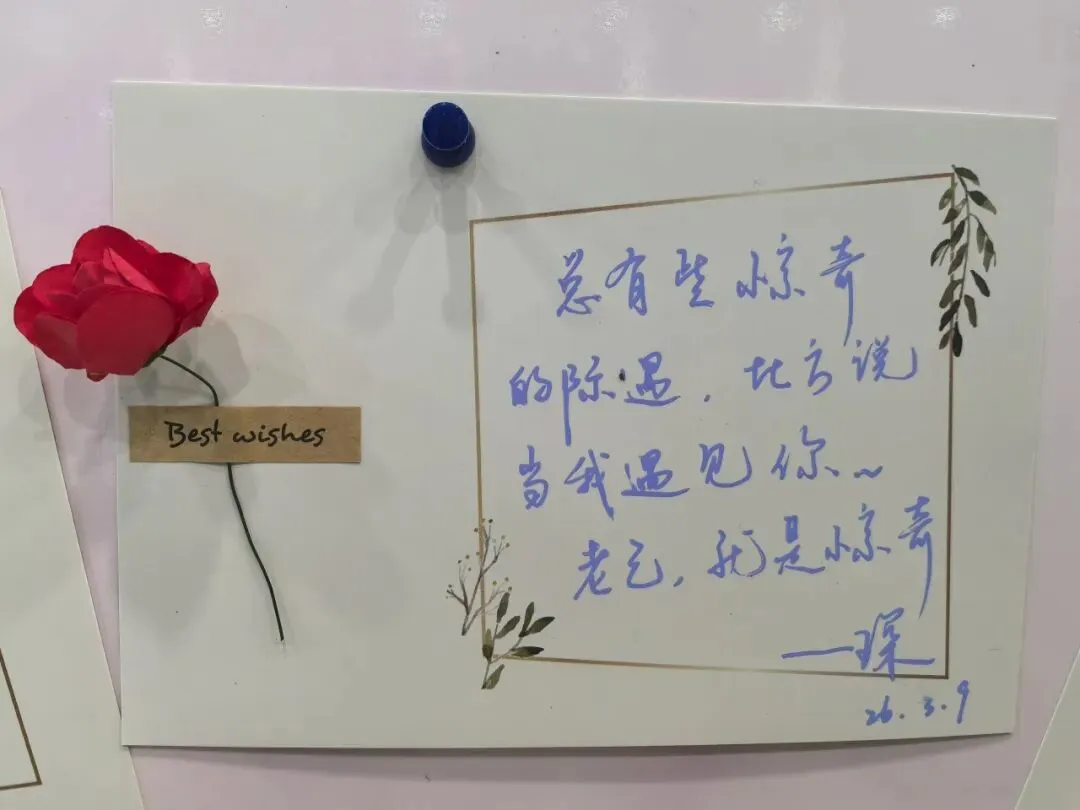 Best wishes
总有些惊奇
的际遇，比方说
当我遇见你～
老之，就是惊奇
——琛
26.3.9